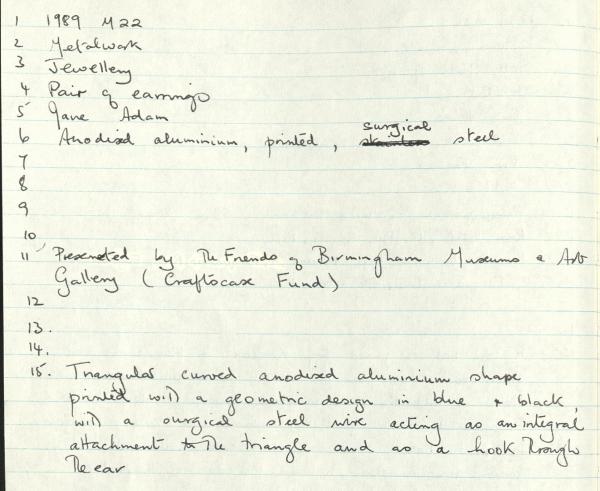 1 1989 M22
2 Metalwork
3 Jewellery
4 Pair of earrings
5 Jane Adam
6 Anodised aluminium, printed, stainless surgical steel
7
8
9
10
11 Presented by The Friends of Birmingham Museums & Art
Gallery (Craftscase Fund)
12
13.
14.
15. Triangular curved anodised aluminium shape
printed with a geometric design in blue & black,
with a surgical steel wire acting as an integral
attachment to the triangle and as a hook through
the ear